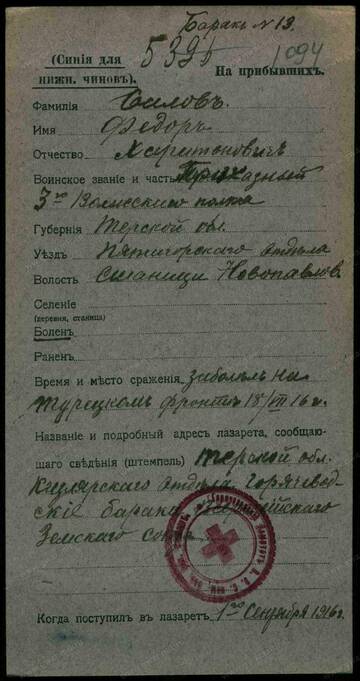 Баракъ № 13.
5395
1094
(Синія для нижн. чиновъ).
На прибывшихъ.
Фамилія Силовъ.
Имя Федоръ
Отчество Харитоновичъ
Воинское званіе и часть Приказный
3го Волжскаго полка
Губернія Терской обл.
Уѣздъ Пятигорскаго отдѣла
Волость Станицы Новопавлов.
Селеніе
(деревня, станица)
Боленъ
Раненъ
Время и мѣсто сраженія заболѣлъ на
Турецкомъ фронтѣ 18/VII 16 г.
Названіе и подробный адресъ лазарета, сообщаю-
щаго свѣдѣнія (штемпель) Терской обл.
Кизлярскаго отдѣла Горячевод-
скіе бараки Всероссійскаго
Земскаго Союза
Когда поступилъ въ лазаретъ 1го Сентября 1916 г.